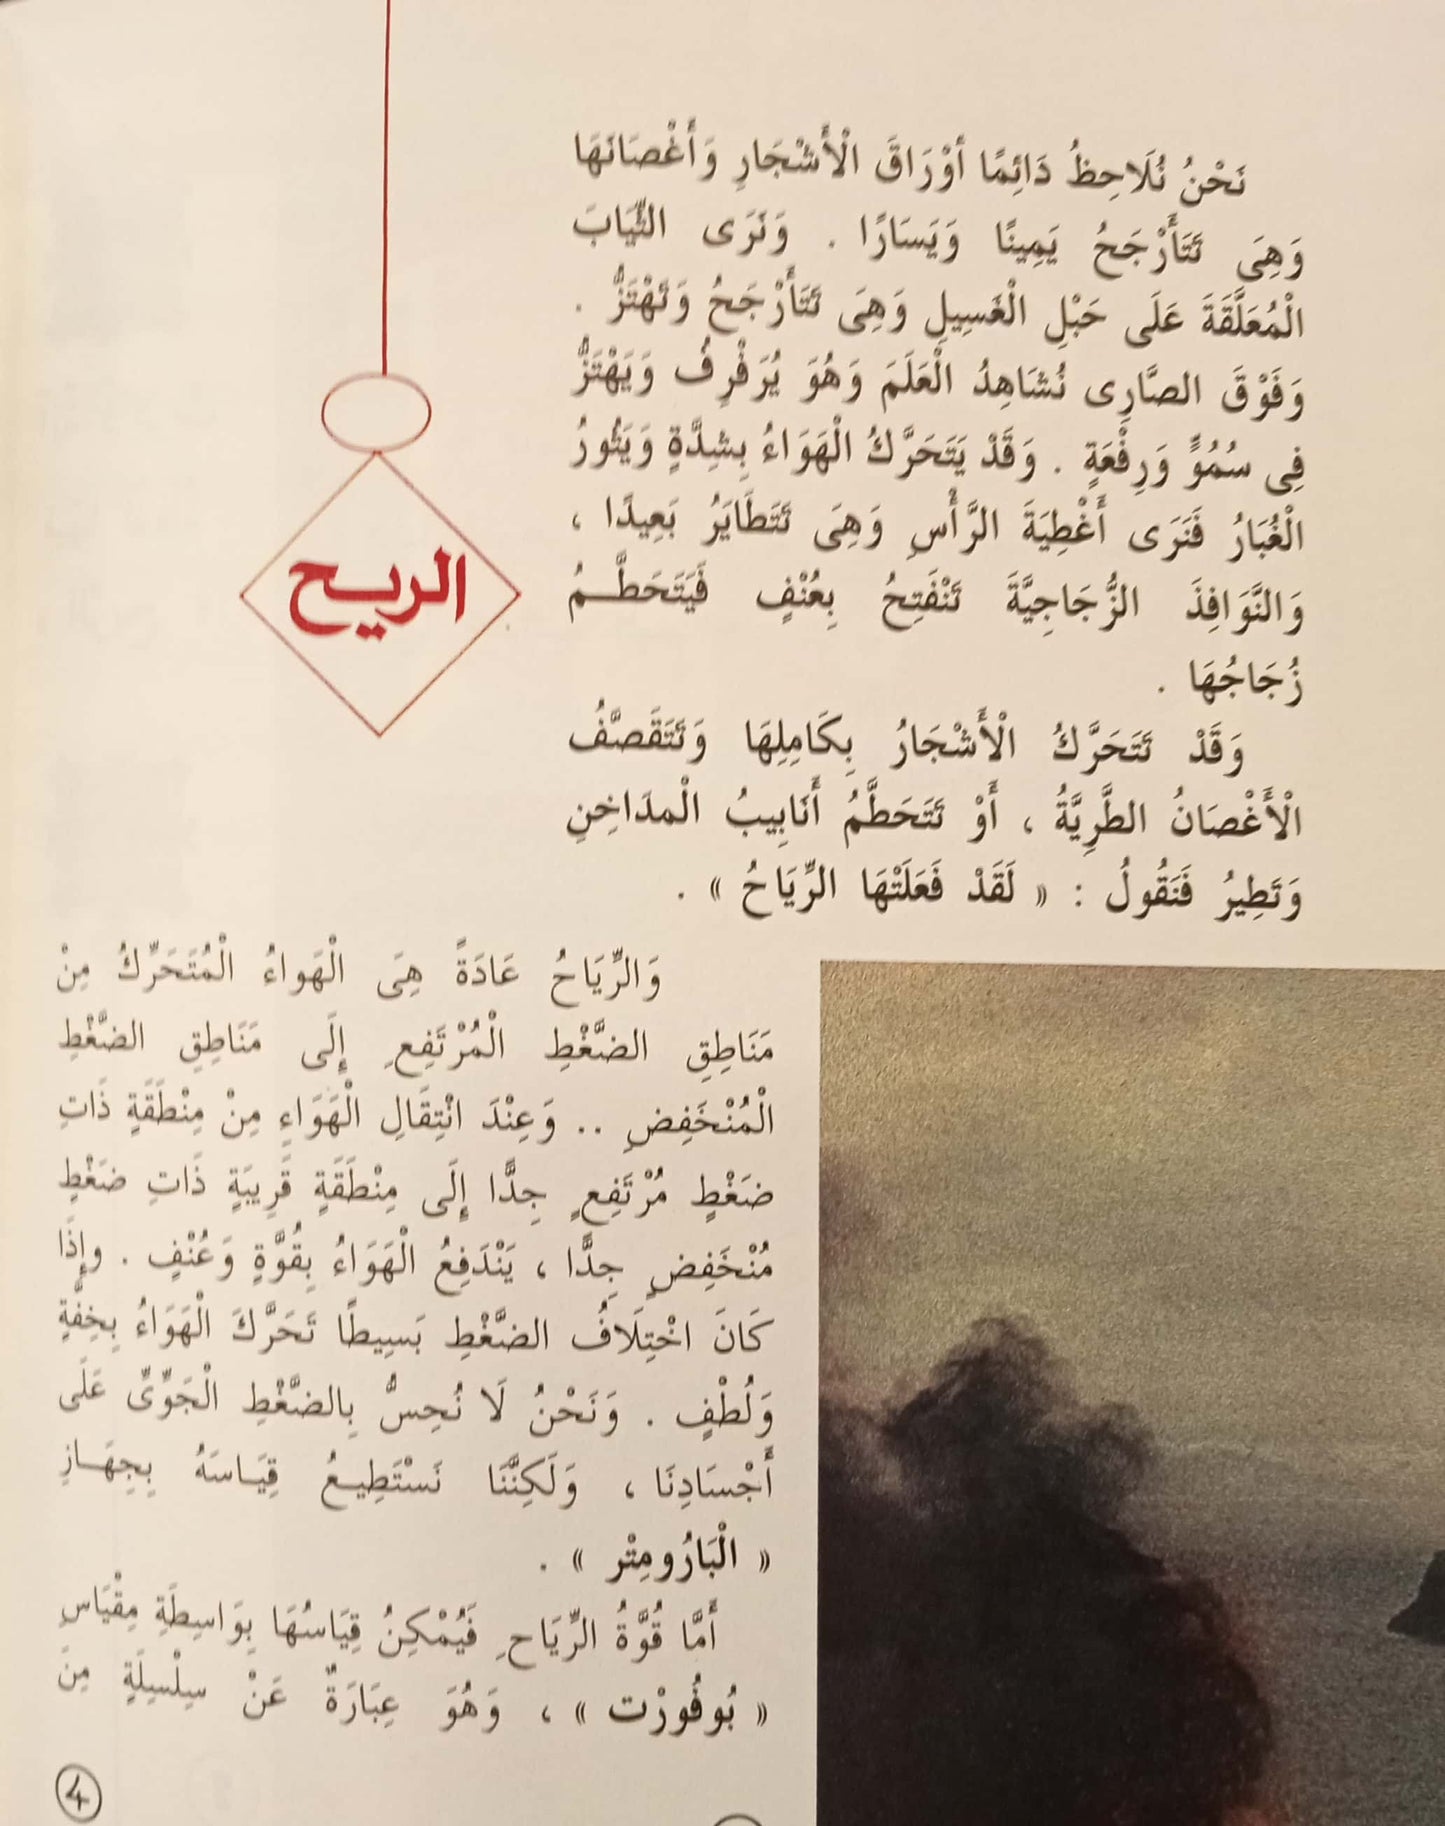 الريح
نَحْنُ نُلَاحِظُ دَائِمًا أوْرَاقَ الْأَشْجَارِ وَأَغْصَانَهَا
وَهِىَ تَتَأَرْجَحُ يَمِينًا وَيَسَارًا . وَنَرَى الثِّيَابَ
الْمُعَلَّقَةَ عَلَى حَبْلِ الْغَسِيلِ وَهِىَ تَتَأَرْجَحُ وَتَهْتَزُّ .
وَفَوْقَ الصَّارِى نُشَاهِدُ الْعَلَمَ وَهُوَ يُرَفْرِفُ وَيَهْتَزُّ
فِى سُمُوٍّ وَرِفْعَةٍ . وَقَدْ يَتَحَرَّكُ الْهَوَاءُ بِشِدَّةٍ وَيَثُورُ
الْغُبَارُ فَنَرَى أَغْطِيَةَ الرَّأْسِ وَهِىَ تَتَطَايَرُ بَعِيدًا ،
وَالنَّوَافِذَ الزُّجَاجِيَّةَ تَنْفَتِحُ بِعُنْفٍ فَيَتَحَطَّـمُ
زُجَاجُهَا .
وَقَدْ تَتَحَرَّكُ الْأَشْجَارُ بِكَامِلِهَا وَتَتَقَصَّفُ
الْأَغْصَانُ الطَّرِيَّةُ ، أَوْ تَتَحَطَّمُ أَنَابِيبُ الْمدَاخِنِ
وَتَطِيرُ فَنَقُولُ : « لَقَدْ فَعَلَتْهَا الرِّيَاحُ » .
وَالرِّيَاحُ عَادَةً هِىَ الْهَواءُ الْمُتَحَرِّكُ مِنْ
مَنَاطِقِ الضَّغْطِ الْمُرْتَفِعِ إِلَى مَنَاطِقِ الضَّغْطِ
الْمُنْخَفِضِ .. وَعِنْدَ انْتِقَالِ الْهَوَاءِ مِنْ مِنْطَقَةٍ ذَاتِ
ضَغْطٍ مُرْتَفِعٍ جِدًّا إِلَى مِنْطَقَةٍ قَرِيبَةٍ ذَاتِ ضَغْطٍ
مُنْخَفِضٍ جِدًّا ، يَنْدَفِعُ الْهَوَاءُ بِقُوَّةٍ وَعُنْفٍ . وإِذَا
كَانَ اخْتِلَافُ الضَّغْطِ بَسِيطًا تَحَرَّكَ الْهَوَاءُ بِخِفَّةٍ
وَلُطْفٍ . وَنَحْنُ لَا نُحِسُّ بِالضَّغْطِ الْجَوِّىِّ عَلَى
أَجْسَادِنَا ، وَلَكِنَّنَا نَسْتَطِيعُ قِيَـاسَهُ بِجِهَـازِ
« الْبَارُومِتْر » .
أَمَّا قُوَّةُ الرِّيَاحِ فَيُمْكِنُ قِيَاسُهَا بِوَاسِطَةِ مِقْيَاسِ
« بُوفُورْت » ، وَهُوَ عِبَارَةٌ عَنْ سِلْسِلَةٍ مِنَ
4